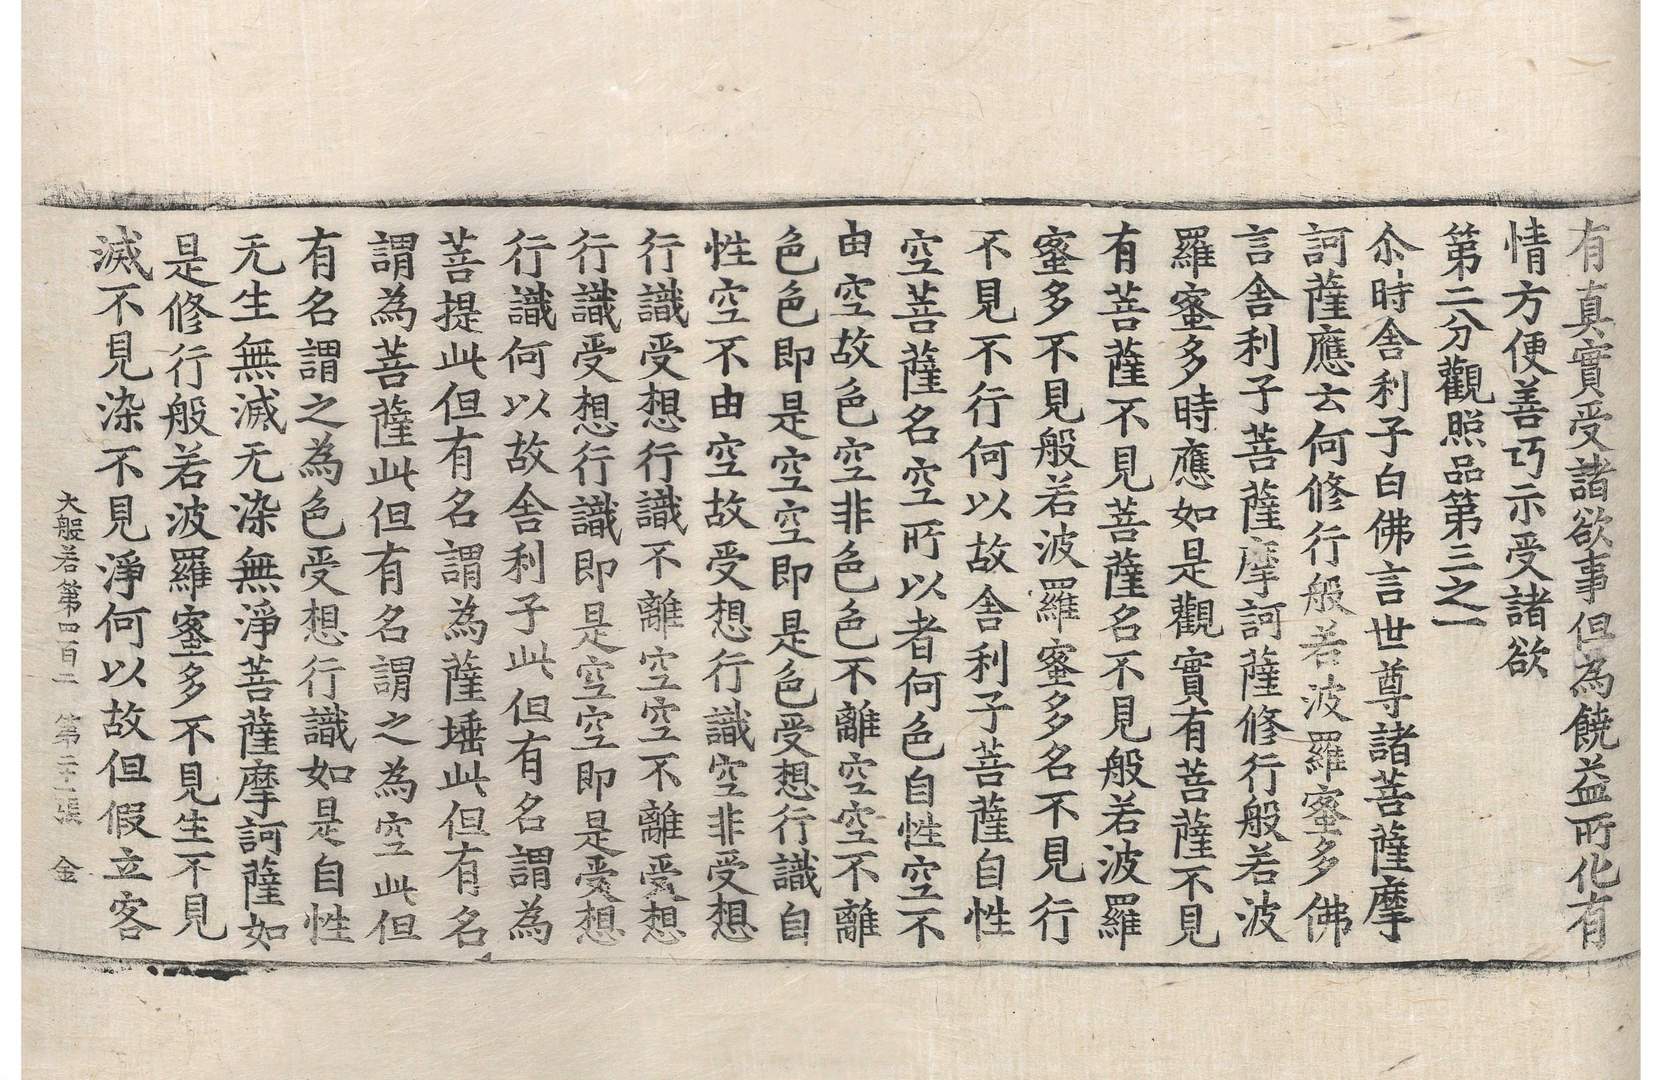 有真實受諸欲事但為饒益所化有
情方便善巧示受諸欲
第二分觀照品第三之一
尒時舍利子白佛言世尊諸菩薩摩
訶薩應云何修行般若波羅蜜多佛
言舍利子菩薩摩訶薩修行般若波
羅蜜多時應如是觀實有菩薩不見
有菩薩不見菩薩名不見般若波羅
蜜多不見般若波羅蜜多名不見行
不見不行何以故舍利子菩薩自性
空菩薩名空所以者何色自性空不
由空故色空非色色不離空空不離
色色即是空空即是色受想行識自
性空不由空故受想行識空非受想
行識受想行識不離空空不離受想
行識受想行識即是空空即是受想
行識何以故舍利子此但有名謂為
菩提此但有名謂為薩埵此但有名
謂為菩薩此但有名謂之為空此但
有名謂之為色受想行識如是自性
无生無滅无染無淨菩薩摩訶薩如
是修行般若波羅蜜多不見生不見
滅不見染不見淨何以故但假立客
大般若第四百二 第二十一張 金